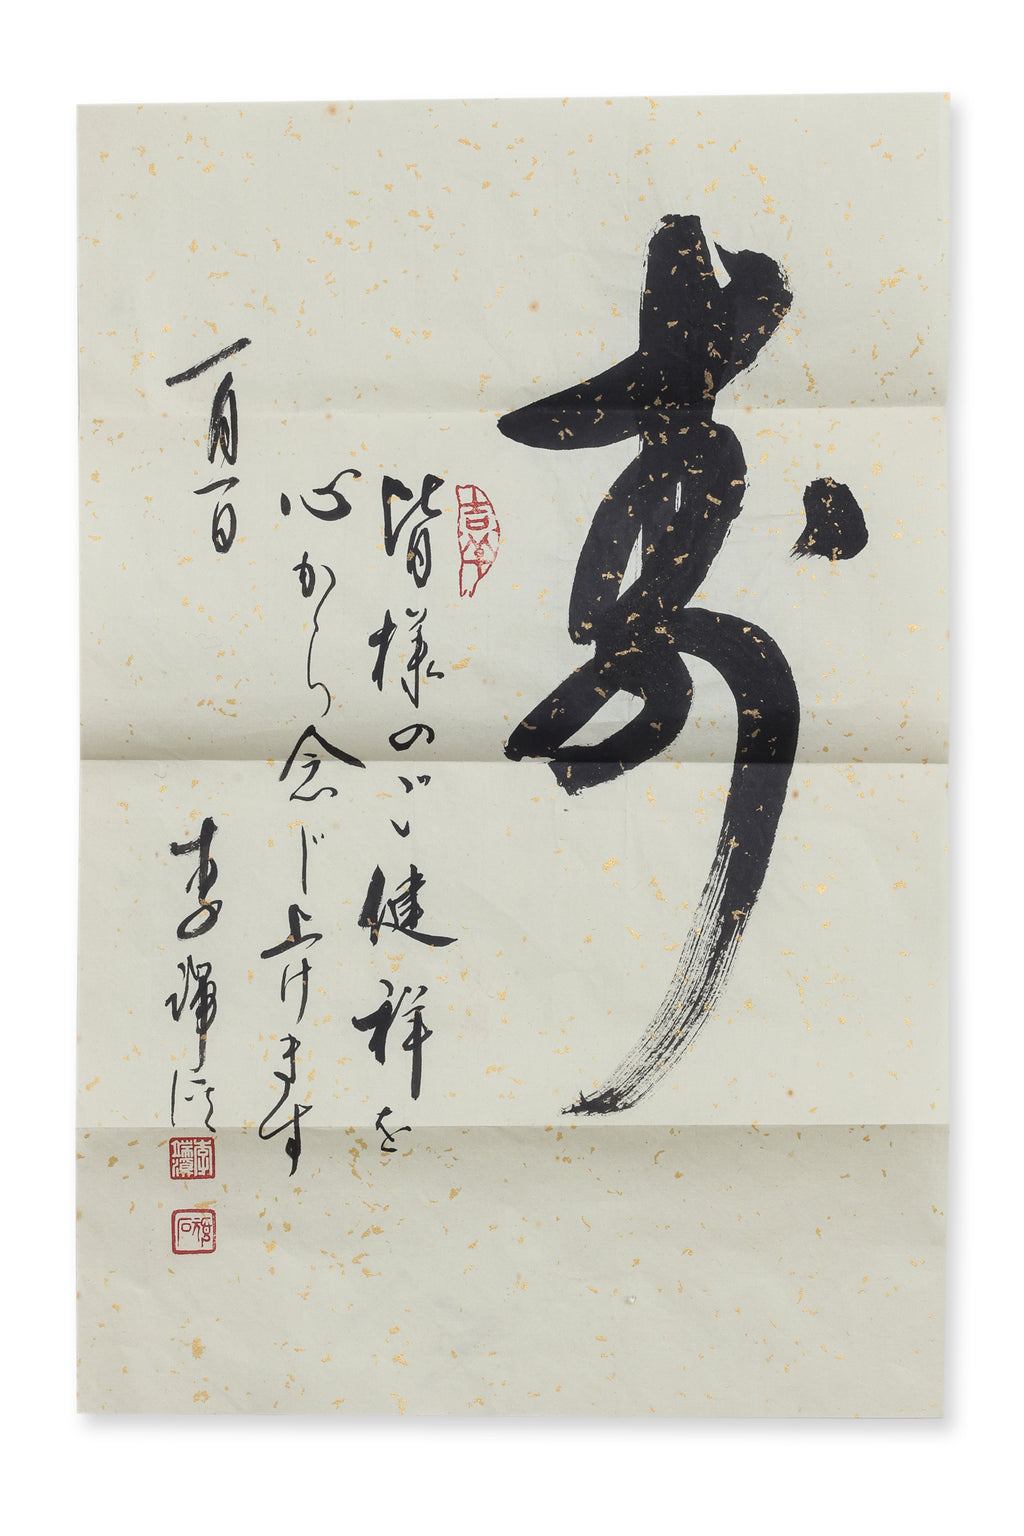 寿
皆様のご健祥を
心から念じ上げます
一月一日
李